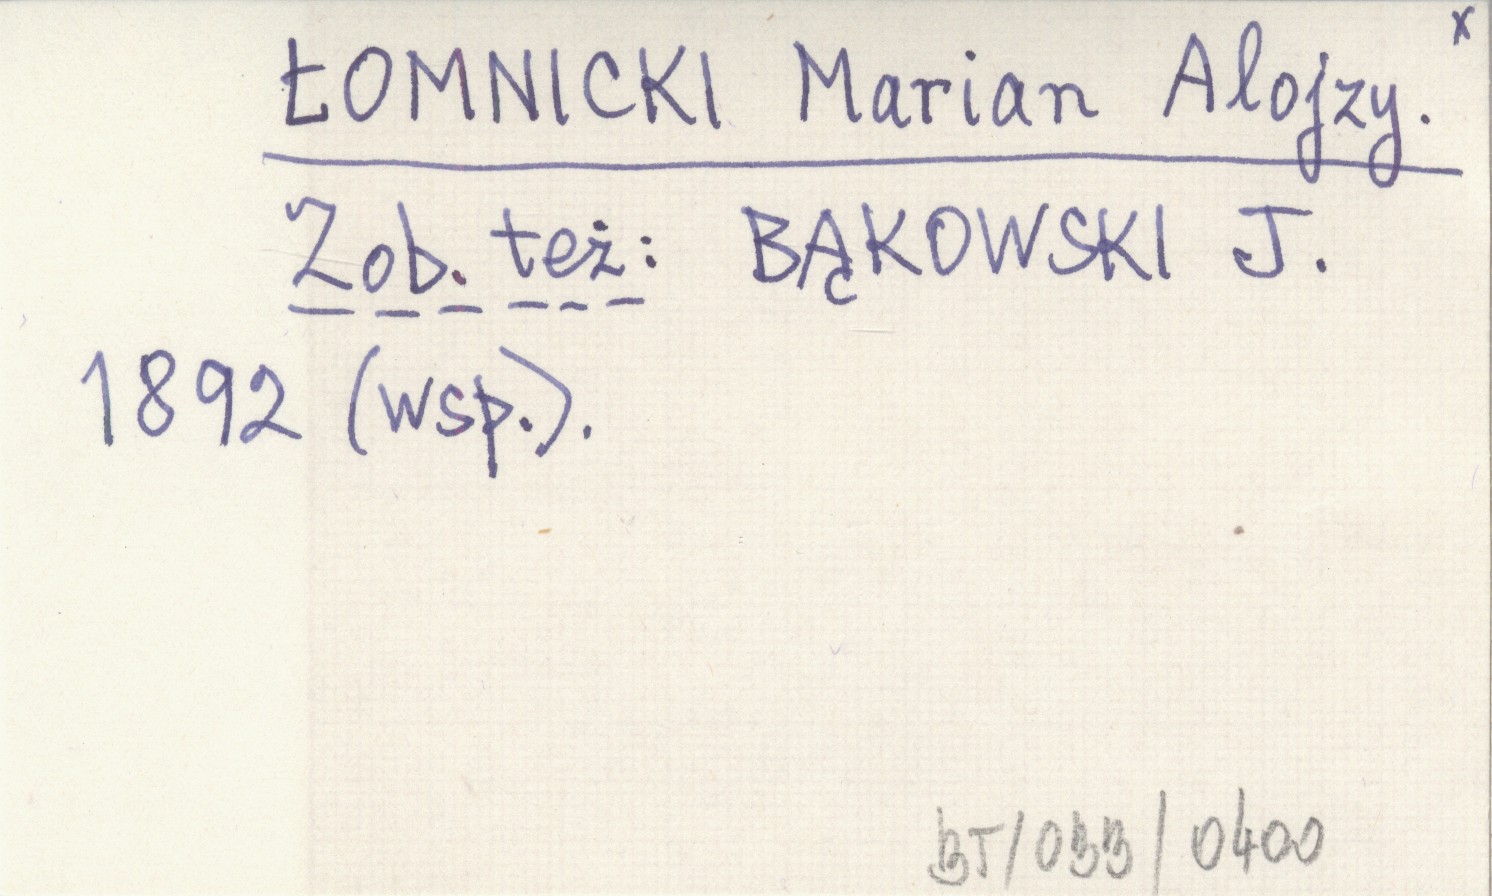 ŁOMNICKI Marian Alojzy. x
Zob. też: BĄKOWSKI J.
1892 (wsp.).
BT/033/0400